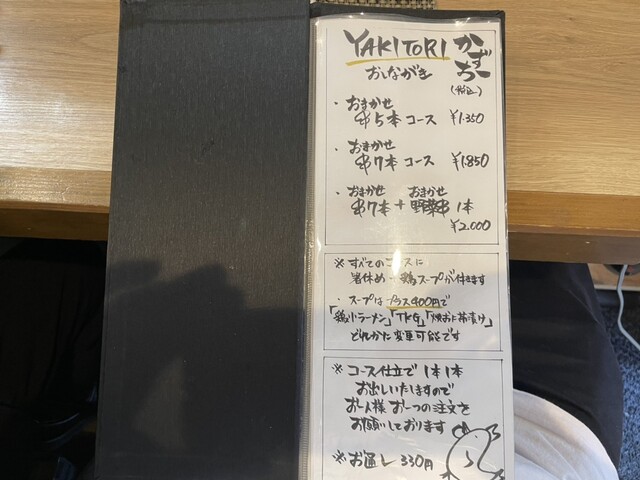 YAKITORI かずち
おしながき
(税込)
・おまかせ
串5本 コース ¥1.350
・おまかせ
串7本 コース ¥1.850
・おまかせ おまかせ
串7本 + 野菜串 1本
¥2.000
※すべてのコースに
箸休め・鶏スープが付きます
・スープはプラス400円で
「鶏小ラーメン」「TKG」「焼おに茶漬け」
どれかに変更可能です
※コース仕立で 1本1本
お出しいたしますので
お一人様 お一つの注文を
お願いしております
※お通し 330円